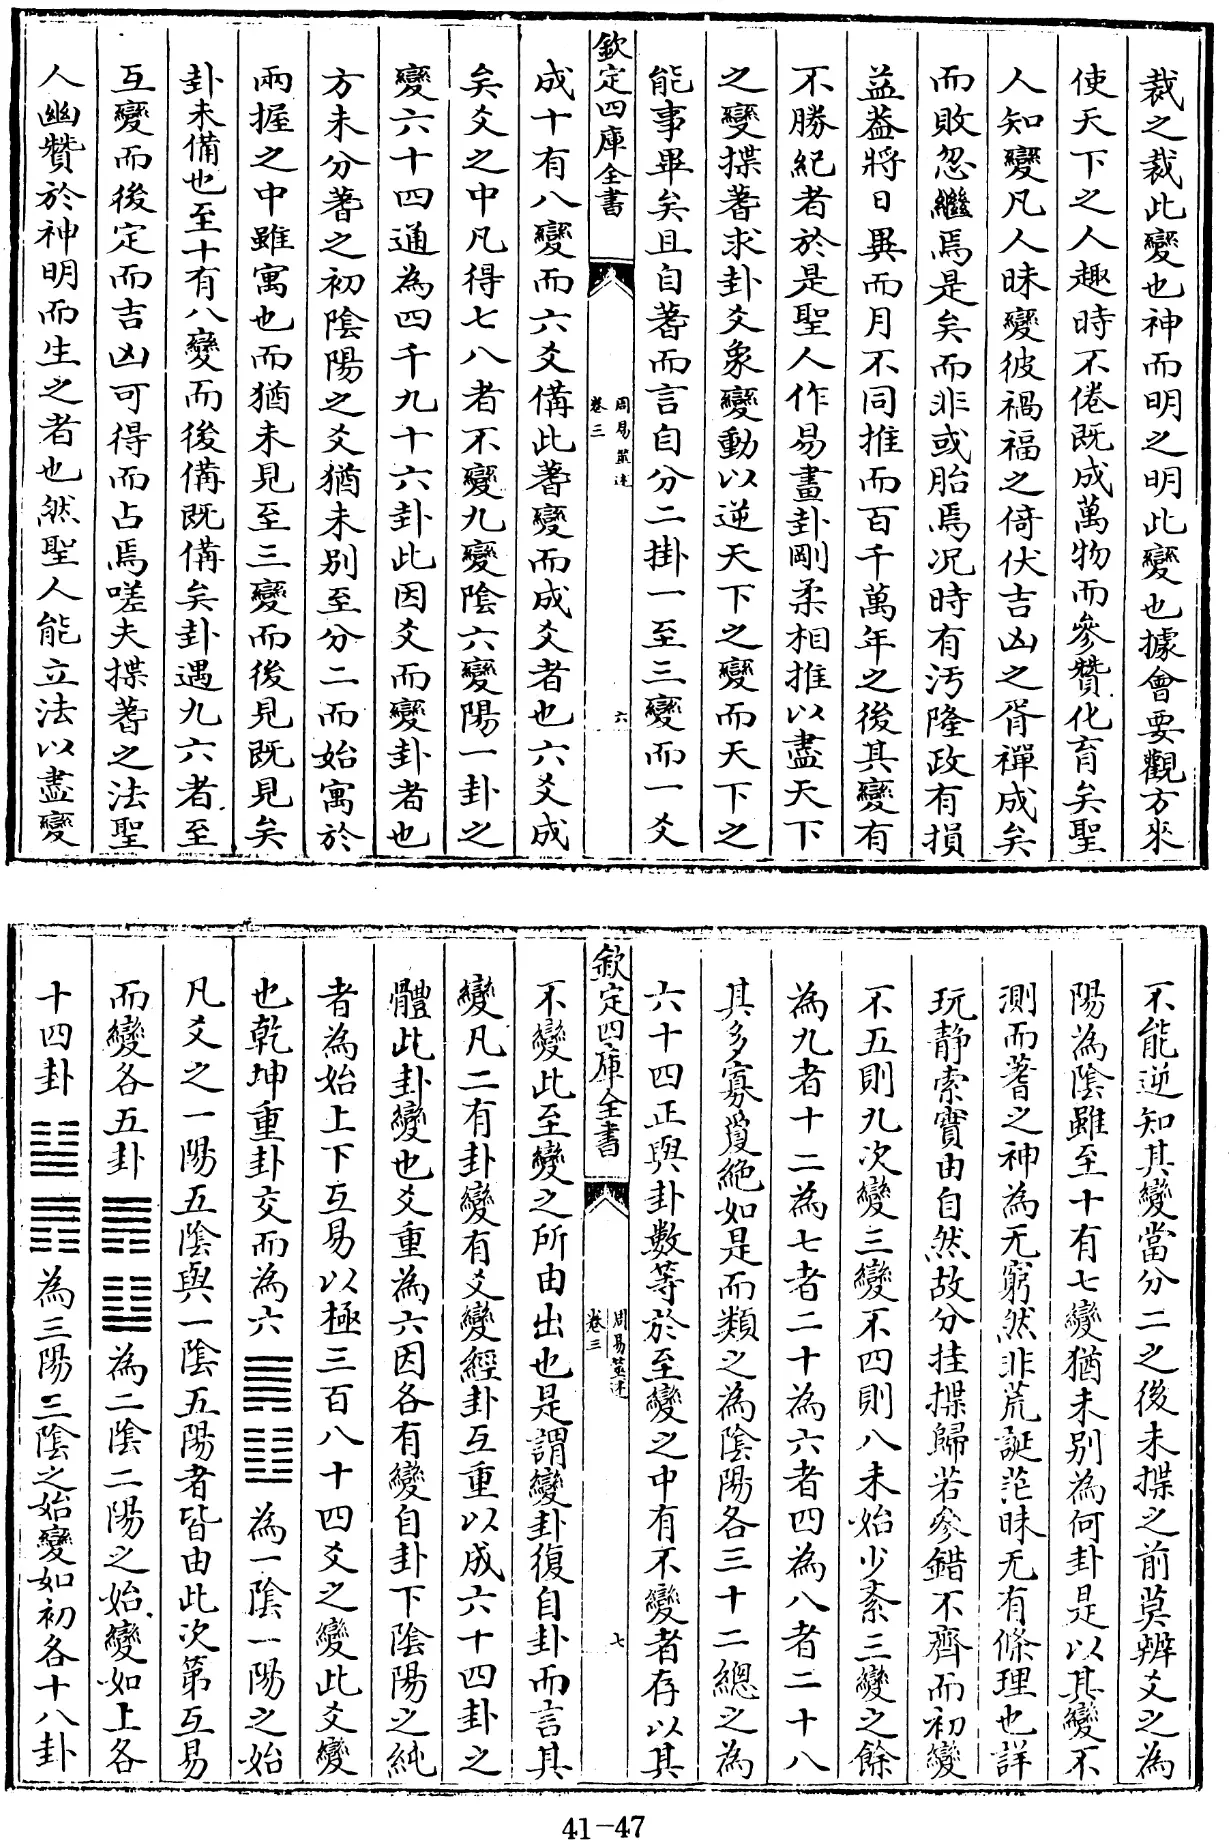 裁之裁此變也神而明之明此變也據會要觀方來
使天下之人趣時不倦既成萬物而參贊化育矣聖
人知變凡人昧變彼禍福之倚伏吉凶之胥禪成矣
而敗忽繼焉是矣而非或胎焉况時有汚隆政有損
益益將日異而月不同推而百千萬年之後其變有
不勝紀者於是聖人作易畫卦剛柔相推以盡天下
之變揲蓍求卦爻象變動以逆天下之變而天下之
能事畢矣且自蓍而言自分二掛一至三變而一爻
欽定四庫全書
周易筮述
卷三
六
成十有八變而六爻備此蓍變而成爻者也六爻成
矣爻之中凡得七八者不變九變陰六變陽一卦之
變六十四通為四千九十六卦此因爻而變卦者也
方未分蓍之初陰陽之爻猶未別至分二而始寓於
兩握之中雖寓也而猶未見至三變而後見既見矣
卦未備也至十有八變而後備既備矣卦遇九六者至
互變而後定而吉凶可得而占焉嗟夫揲蓍之法聖
人幽贊於神明而生之者也然聖人能立法以盡變
不能逆知其變當分二之後未揲之前莫辨爻之為
陽為陰雖至十有七變猶未别為何卦是以其變不
測而蓍之神為无窮然非荒誕茫昧无有條理也詳
玩静索實由自然故分挂揲歸若參錯不齊而初變
不五則九次變三變不四則八未始少紊三變之餘
為九者十二為七者二十為六者四為八者二十八
其多寡夐絶如是而類之為陰陽各三十二總之為
六十四正與卦數等於至變之中有不變者存以其
欽定四庫全書
周易筮述
卷三
七
不變此至變之所由出也是謂變卦復自卦而言其
變凡二有卦變有爻變經卦互重以成六十四卦之
體此卦變也爻重為六因各有變自卦下陰陽之純
者為始上下互易以極三百八十四爻之變此爻變
也乾坤重卦交而為六䷫䷗為一陰一陽之始
凡爻之一陽五陰與一陰五陽者皆由此次第互易
而變各五卦䷠䷒為二陰二陽之始變如上各
十四卦䷊䷋為三陽三陰之始變如初各十八卦
41-47